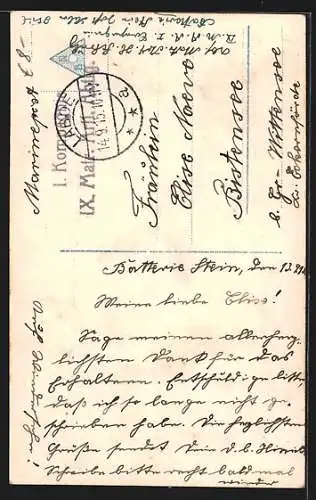 Marinesache
1. Kompagnie
IX. Matr. Art. Abtlg.
LABOE
14.9.15. 10-11
a
Abs. Matr. Art. H.
Batterie Stein
Fräulein
Elise Naeve
Bistensee
b. Gr.-Wittensee
Kr. Eckernförde
Batterie Stein, den 13.9.15
Meine liebe Elise!
Sage meinen allerherz-
lichsten Dank für das
Erhaltene. Entschuldige bitte,
daß ich so lange nicht ge-
schrieben habe. Die herzlichsten
Grüße sendet Dein d. l.
Schreibe bitte recht bald mal
wieder
Auf Wiedersehn!